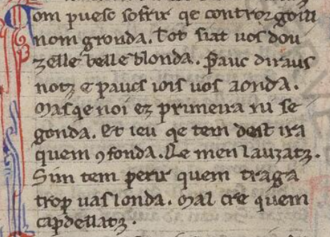 Nom pueso sofrir qe contraz goia
nom gronda. Tot siat uos don
zelle belle blonda. Pauc diraus
notz e paucs iois uos aonda.
Mas qe noi ez primeira ni se
gonda. Et ieu qe tem dest ira
quem 9fonda. Ee men lauzatz.
Sim tem perir quem traga
trop uas londa. Mal cre quem
capdellatz.